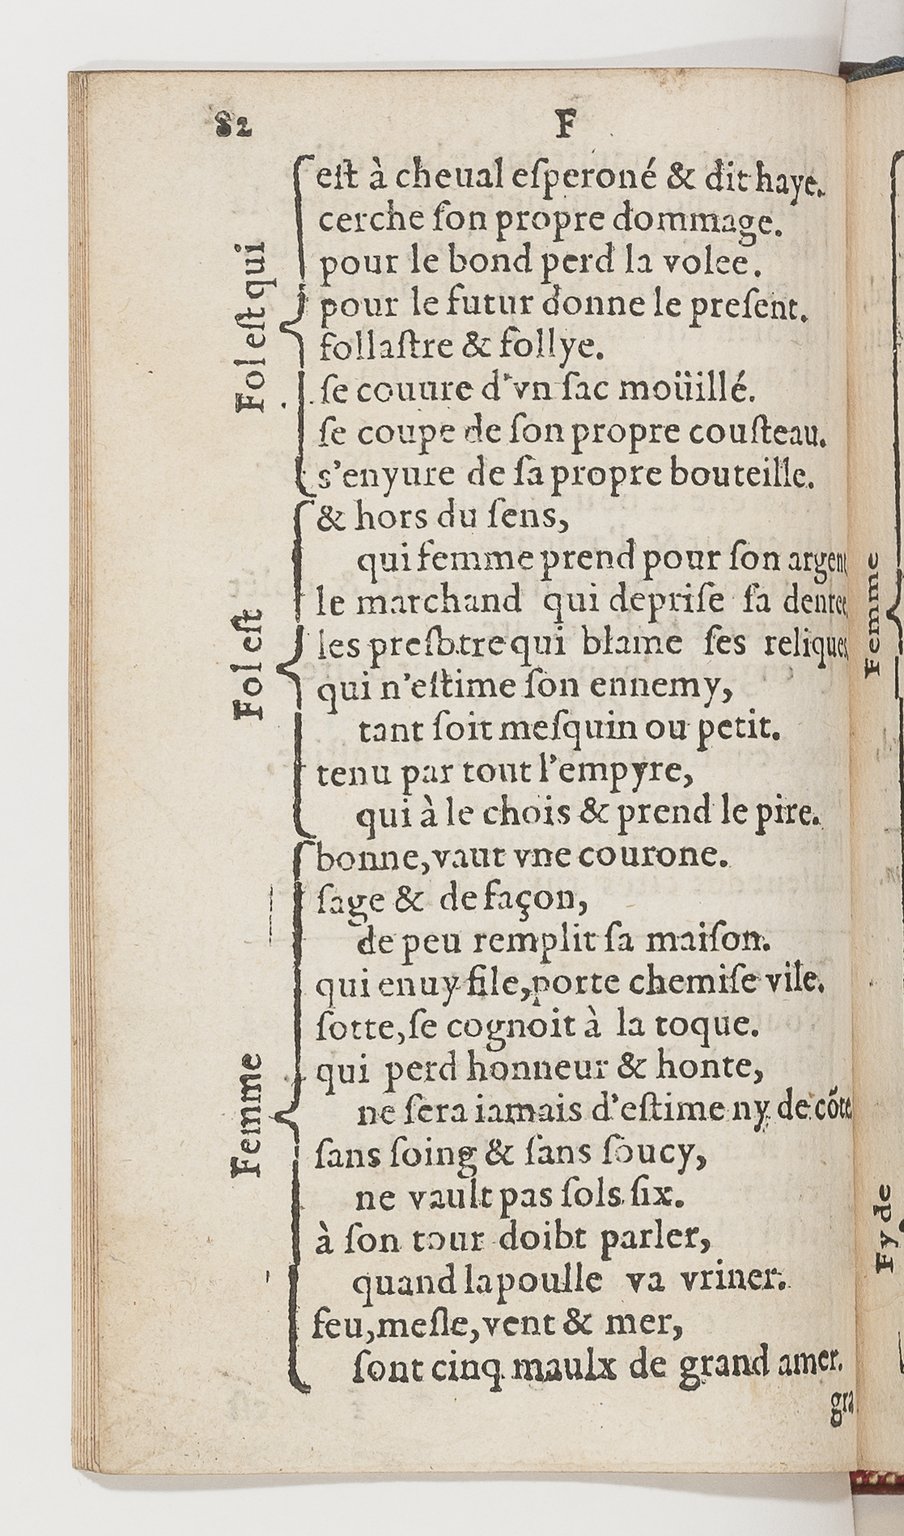 82 F
Fol est qui
eſt à cheual eſperoné & dit haye.
cerche ſon propre dommage.
pour le bond perd la volee.
pour le futur donne le preſent.
follaſtre & follye.
ſe couure d'vn ſac moüillé.
ſe coupe de ſon propre couſteau.
s'enyure de ſa propre bouteille.
Fol eſt
& hors du ſens,
qui femme prend pour ſon argent
le marchand qui depriſe ſa denree
les presbtre qui blame ſes reliques
qui n'eſtime ſon ennemy,
tant ſoit meſquin ou petit.
tenu par tout l'empyre,
qui à le chois & prend le pire.
Femme
bonne, vaut vne courone.
ſage & de façon,
de peu remplit ſa maiſon.
qui enuy file, porte chemiſe vile.
ſotte, ſe cognoit à la toque.
qui perd honneur & honte,
ne ſera iamais d'eſtime ny de cõte
ſans ſoing & ſans ſoucy,
ne vault pas ſols ſix.
à ſon tour doibt parler,
quand la poulle va vriner.
feu, meſle, vent & mer,
ſont cinq maulx de grand amer.
gra
Femme
Fy de